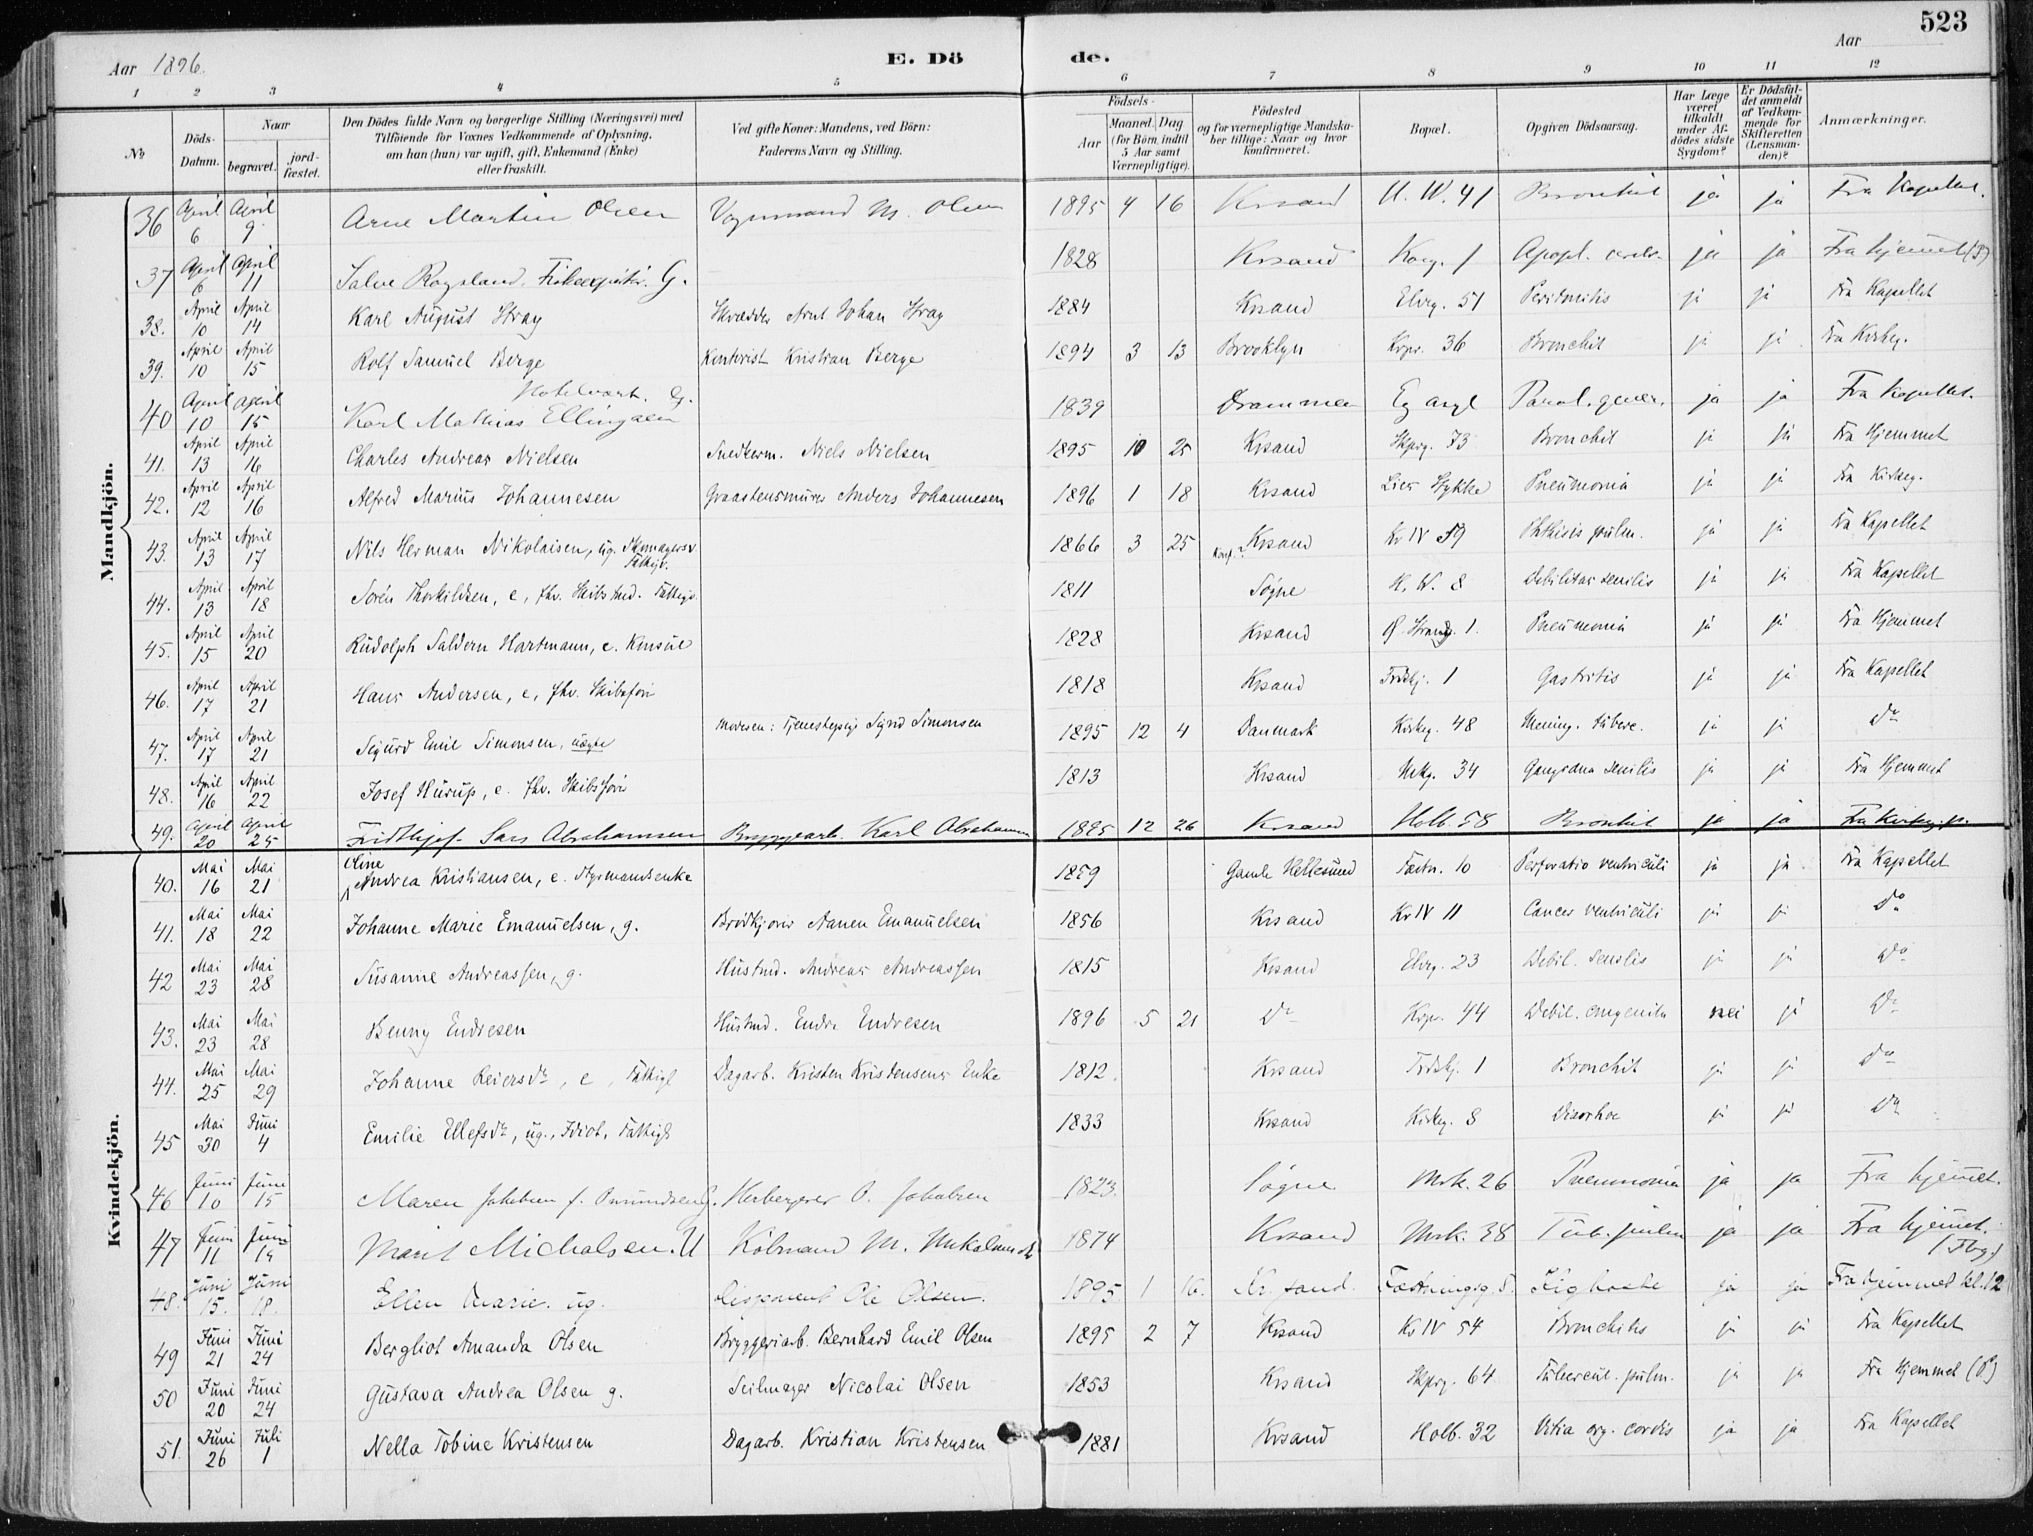 523
Aar 1896. E. Dö de. Aar
1 2 3 4 5 6 7 8 9 10 11 12
No Döds-Datum. Naar begravet. jord-fæstet. Den Dödes fulde Navn og borgerlige Stilling (Næringsvei) med Tilföiende for Voxnes Vedkommende af Oplysning, om han (hun) var ugift, gift, Enkemand (Enke) eller fraskilt. Ved gifte Koner: Mandens, ved Börn: Faderens Navn og Stilling. Födsels- Aar Maaned. Dag (for Börn indtil 5 Aar samt Værnepligtige). Födested og for værnepligtige Mandskaber tillige: Naar og hvor konfirmeret. Bopæl. Opgiven Dödsaarsag. Har Læge været tilkaldt under Afdödes sidste Sygdom? Er Dödsfaldet anmeldt af Vedkommende for Skifteretten (Lensmanden)? Anmærkninger.
Mandkjön.
36 April 6 April 9 Arne Martin Olsen Vognmand M. Olsen 1895 4 16 Krsand H. W. 41 Bronkit ja ja Fra Kapellet.
37 April 6 April 11 Salve Rogsland, G. 1828 Krsand Kong. 1 Apopl. cerebr. ja ja Fra Hjemmet
38. April 10 April 14 Karl August Stray Skrædder Arnt Johan Stray 1884 Krsand Elveg. 51 ja ja Fra Kapellet
39. April 10 April 15 Rolf Samuel Berge Kontorist Kristian Berge 1894 3 13 Brooklyn 36 Bronchit ja ja Fra Kirkeg.
40 April 10 April 15 Hotelvært. G. Karl Mathias Ellingsen 1839 Drammen Eg asyl Paral. gener. ja ja Fra Kapellet.
41. April 13 April 16 Charles Andreas Nielsen Snedkerm. Niels Nielsen 1895 10 25 Krsand Skprg. 73 Bronchit ja ja Fra Hjemmet
42. April 12 April 16 Alfred Marius Johannesen Graastensmurer Anders Johannesen 1896 1 18 Krsand Lies Stykke Pneumonia ja ja Fra Kirkeg.
43. April 13 April 17 Nils Herman Nikolaisen, ug. Skomagersv. Fattigl. 1866 3 25 Konf. Krsand Kv IV 59 Phthisis pulm. ja ja Fra Kapellet
44. April 13 April 18 Sorén Thorkildsen, e, fhv. Skibstmd. Fattigl. 1811 Søgne H. W. 8 Debilitas senilis ja ja Fra Kapellet
45. April 15 April 20 Rudolph Saldern Hartmann, e. Konsul 1828 Krsand Ø. Strandg. 1. Pneumonia ja ja Fra Hjemmet
46. April 17 April 21 Hans Andersen, e, fhv. Skibsfør 1818 Krsand 1 Gastritis ja ja Fra Kapellet
47. April 17 April 21 Sigurd Emil Simonsen, uægte Moderen: Tjenestepige Sigrid Simonsen 1895 12 4 Danmark Kirkeg. 48 Mening. tuberc. ja ja Do
48. April 16 April 22 Josef Hurup, e. fhv. Skibsfører 1813 Krsand 34 Gangræna senilis ja ja Fra Hjemmet
49. April 20 April 25 Fridthjof Sars Abrahamsen Bryggearb. Karl Abrahamsen 1895 12 26 Krsand Holb. 58 Bronkit ja ja
Kvindekjön.
40. Mai 16 Mai 21 Oline Andrea Kristiansen, e. Styrmandsenke 1859 Gamle Hellesund Fæstn. 10 Perforatio ventriculi ja ja Fra Kapellet
41. Mai 18 Mai 22 Johanne Marie Emanuelsen, g. Brødkjører Aanen Emanuelsen 1856 Krsand Kv IV 11 Cancer ventriculi ja ja Do
42 Mai 23 Mai 28 Susanne Andreassen, g. Hustmd. Andreas Andreassen 1815 Krsand Elveg. 23 Debil. senilis ja ja Do
43. Mai 23 Mai 28 Benny Endresen Hustmd. Endre Endresen 1896 5 21 Do 44 Debil. congenita nei ja Do
44. Mai 25 Mai 29 Johanne Reiersdr, e, Fattigl Dagarb. Kristen Kristensens Enke 1812 Krsand 1 Bronchit ja ja Do
45 Mai 30 Juni 4 Emilie Ellefsdr, ug., Idiot, Fattigl 1833 Krsand Kirkeg. 8 Diarrhoe ja ja Do
46 Juni 10 Juni 15 Maren Jakobsen f. G. Herbergerer O. Jakobsen 1823. Søgne Mrk. 26 Pneumonia ja ja Fra hjemmet.
47 Juni 11 Juni Marit Michalsen. U Købmand M. 1874 Krsand Mrk. 38 Tub. pulm ja ja Fra hjemmet.
48. Juni 15. Juni 18. Ellen Marie. ug. Ole Olsen. 1895 1 16. Kr.sand. Fæstningsg. 5. Kighoste ja ja Fra Hjemmet kl. 12
49 Juni 21 Juni 24 Bergliot Amanda Olsen Bryggeriarb. Bernhard Emil Olsen 1895 2 7 Krsand Kv IV 54 Bronchitis ja ja Fra Kapellet
50 Juni 20 Juni 24 Gustava Andrea Olsen g. Seilmager Nicolai Olsen 1853 Krsand Skprg. 64 Tubercul. pulm. ja ja Fra Hjemmet
51. Juni 26 Juli 1 Nella Tobine Kristensen Dagarb. Kristian Kristensen 1881 Krsand Holb. 32 Vitia org. cordis ja ja Fra Kapellet